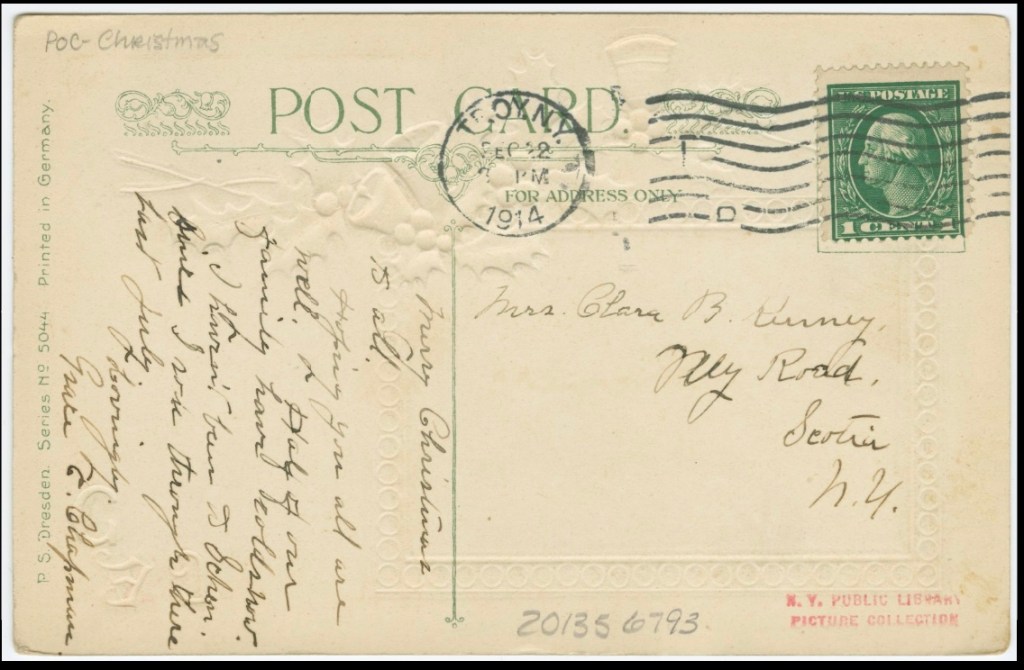 POC-Christmas
POST CARD
FOR ADDRESS ONLY
TROY N.Y.
22
PM
1914
D
U.S. POSTAGE
1 CENT 1
Mrs. Clara B.
Road,
Scotia
N.Y.
Merry Christmas
to all.
Hoping you all are
well.
Family have colds now.
I haven't been to Schen.
since I was through there
last July.
Lovingly
Grace L. Chapman
P. S. Dresden. Series No 5044 Printed in Germany.
20135 6793
N. Y. PUBLIC LIBRARY
PICTURE COLLECTION